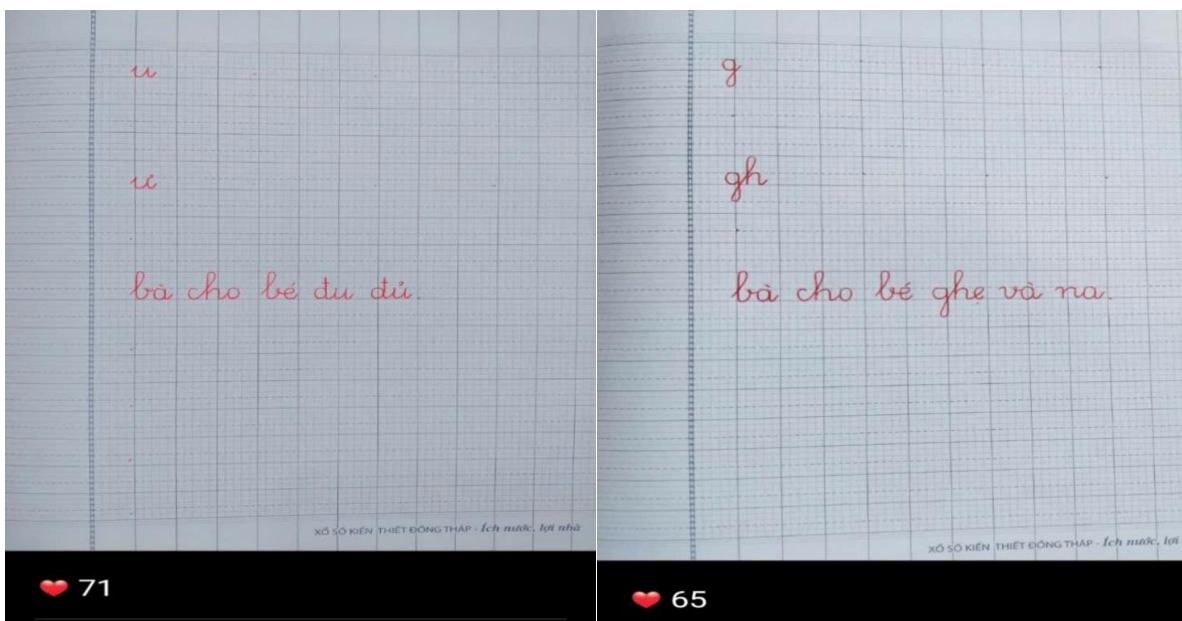 u
ư
bà cho bé đu đủ.
XỔ SỐ KIẾN THIẾT ĐỒNG THÁP - Ích nước, lợi nhà
71
g
gh
bà cho bé ghẹ và na.
XỔ SỐ KIẾN THIẾT ĐỒNG THÁP - Ích nước, lợi
65